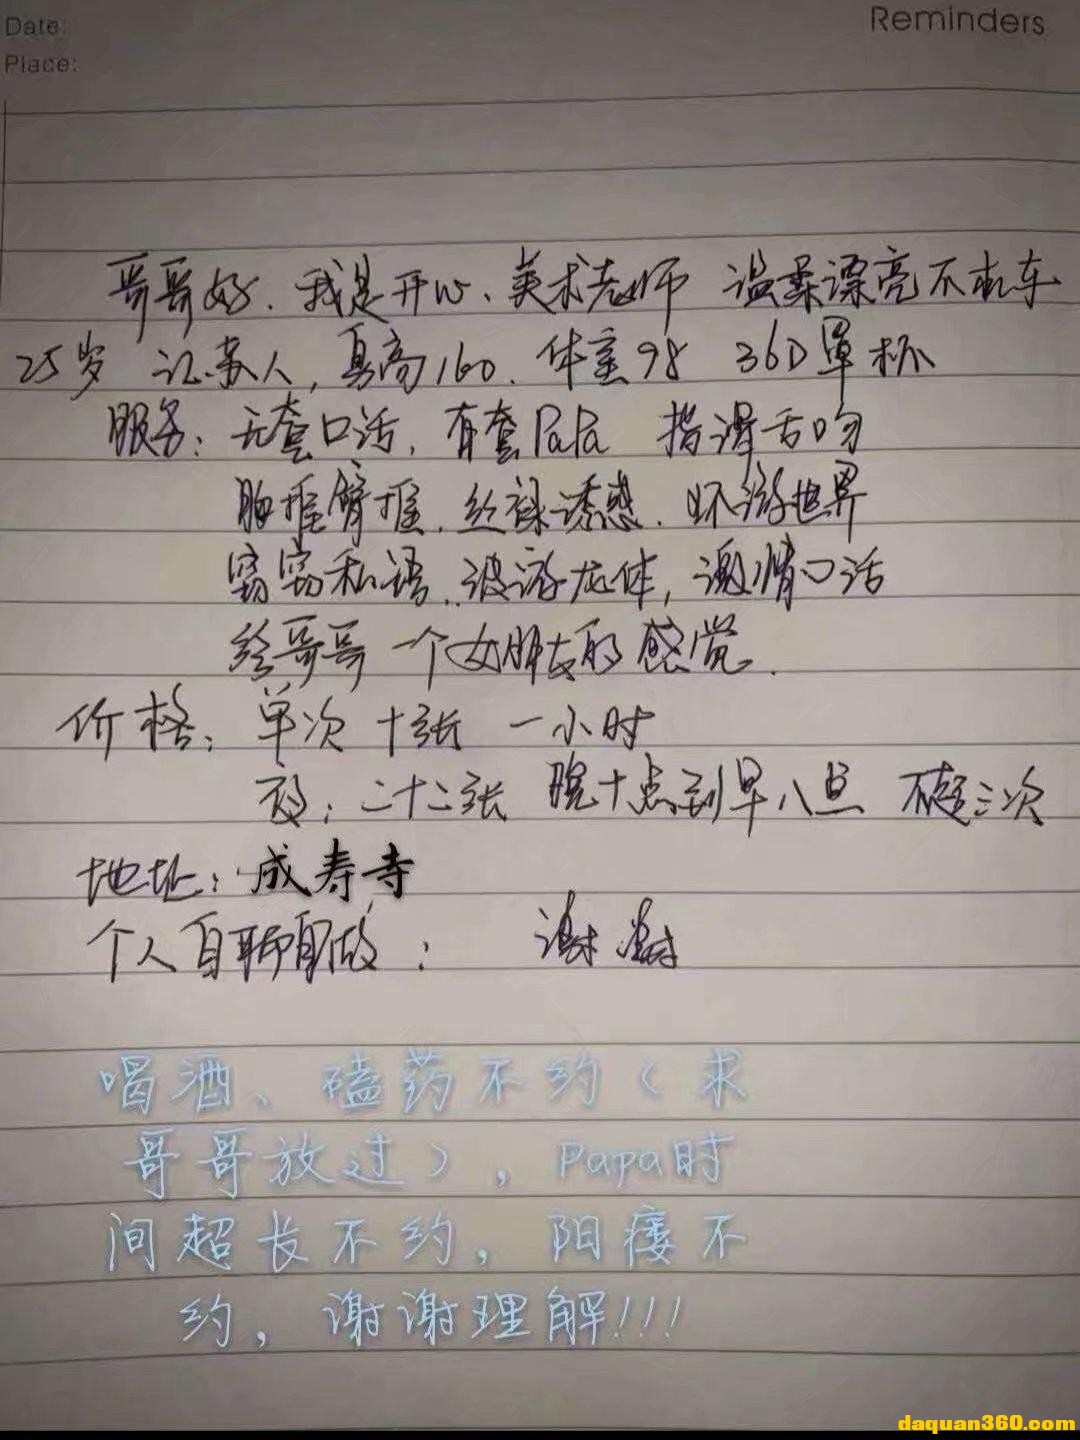 Date:
Reminders
Place:
哥哥好.我是开心、美术老师 温柔漂亮不机车
25岁 江苏人,身高160.体重98 36D罩杯
服务:无套口活,有套PaPa 指滑舌吻
胸推臀推.丝袜诱惑.环游世界
窃窃私语..波游龙体,激情口活
给哥哥一个女朋友的感觉.
价格:单次十张 一小时
夜:二十二张 晚十点到早八点 不超三次
地址:成寿寺
个人自聊自做: 谢谢
喝酒、磕药不约(求
哥哥放过),Papa时
间超长不约,阳痿不
约,谢谢理解!!!
daquan360.com